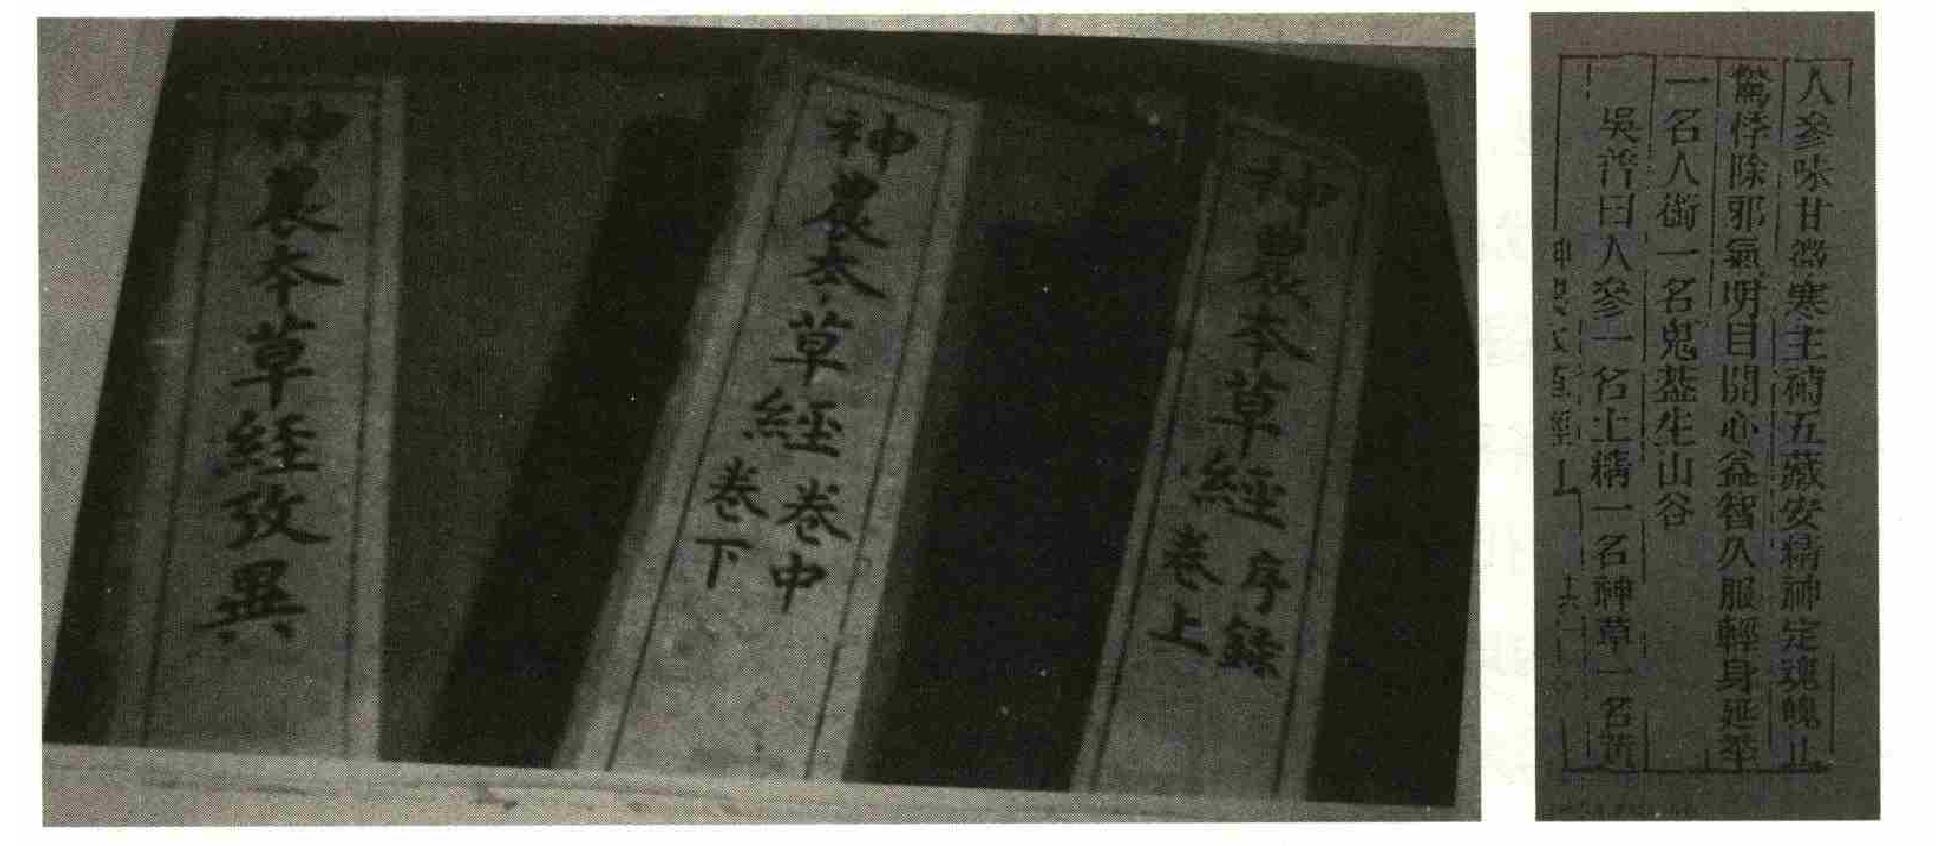 神農本草經
序錄
卷上
神農本草經
卷中
卷下
神農本草經攷異
人參味甘微寒主補五藏安精神定魂魄止
驚悸除邪氣明目開心益智久服輕身延秊
一名人銜一名鬼蓋生山谷
吳普曰人參一名土精一名神草一名